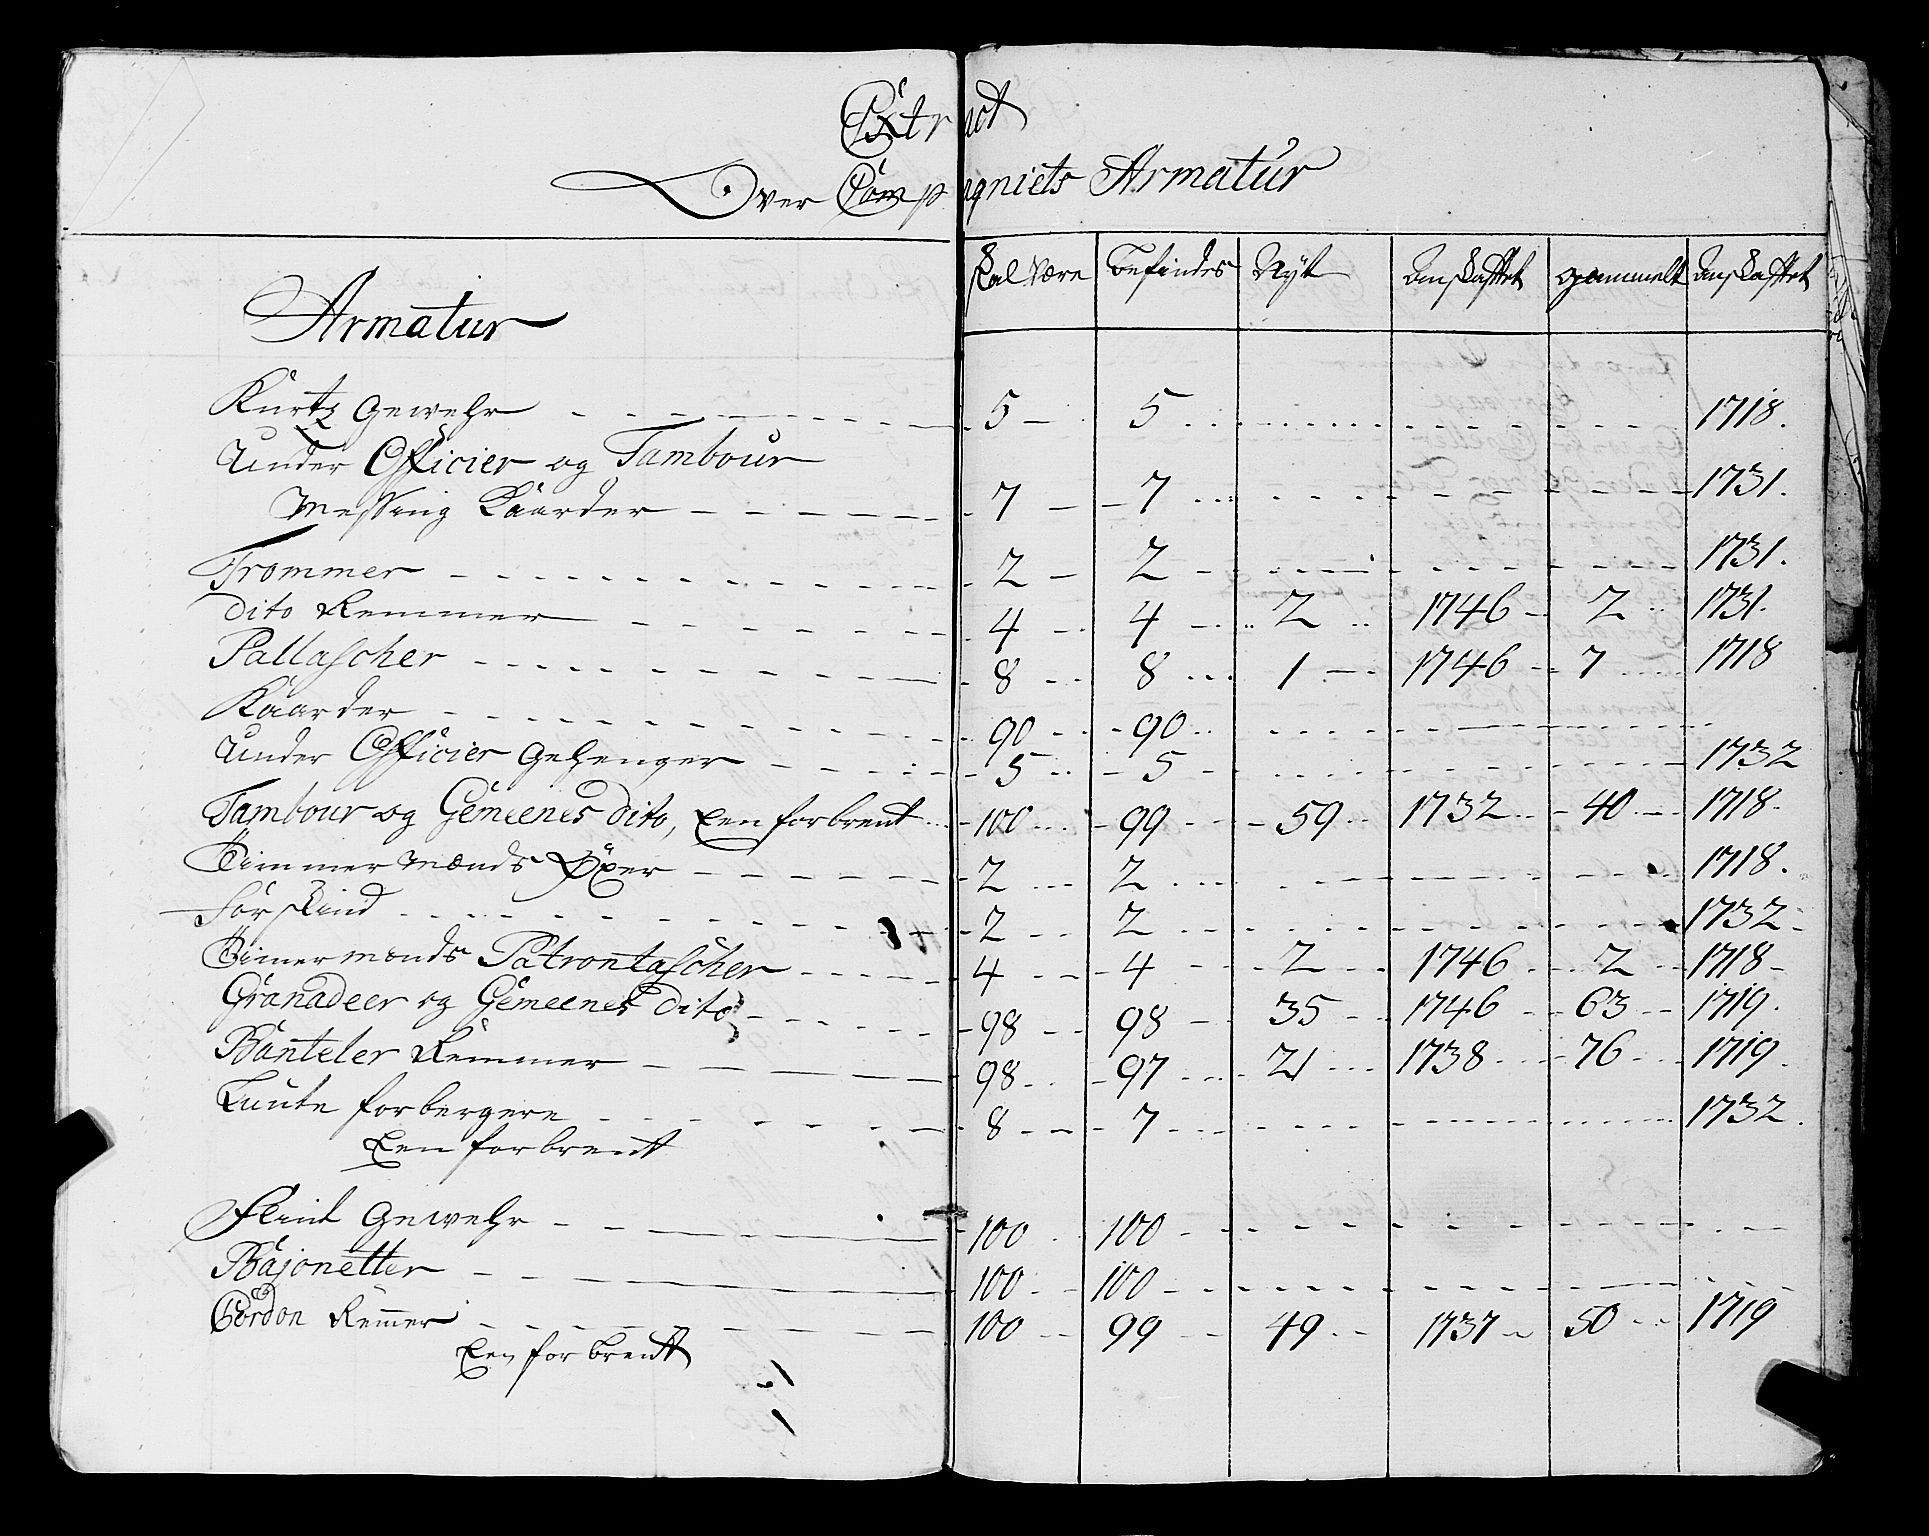 Extract
Over Compagniets Armatur
Armatur | Skal være | Befindes | Nyt | Anskaffet | gammelt | Anskaffet
Kurtz Gewehr - - - 5 - 5 - - - 1718.
Under Officier og Tambour
Messing Kaarder - - - 7 - 7 - - - 1731.
Trommer - - - 2 - 2 - - - 1731.
dito Remmer - - - 4 - 4 - 2 - 1746 - 2 - 1731.
Pallascher - - - 8 - 8 - 1 - 1746 - 7 - 1718
Kaarder - - - 90 - 90 - - -
Under Officier Gehenger - - - 5 - 5 - - - 1732
Tambour og Gemeenes dito, Een forbrent - 100 - 99 - 59 - 1732 - 40 - 1718.
Timmer Mænds Öxer - - - 2 - 2 - - - 1718.
Forskind - - - 2 - 2 - - - 1732
Timer mænds Patrontascher - - - 4 - 4 - 2 - 1746 - 2 - 1718
Granadeer og Gemeenes dito - - - 98 - 98 - 35 - 1746 - 63 - 1719.
Banteler Remmer - - - 98 - 97 - 21 - 1738 - 76 - 1719.
Lunte forbergere - - - 8 - 7 - - - 1732.
Een forbrent
Flint Gewehr - - - 100 - 100 - - -
Bajonetter - - - 100 - 100 - - -
Cordon Remer - - - 100 - 99 - 49 - 1737 - 50 - 1719
Een forbrent